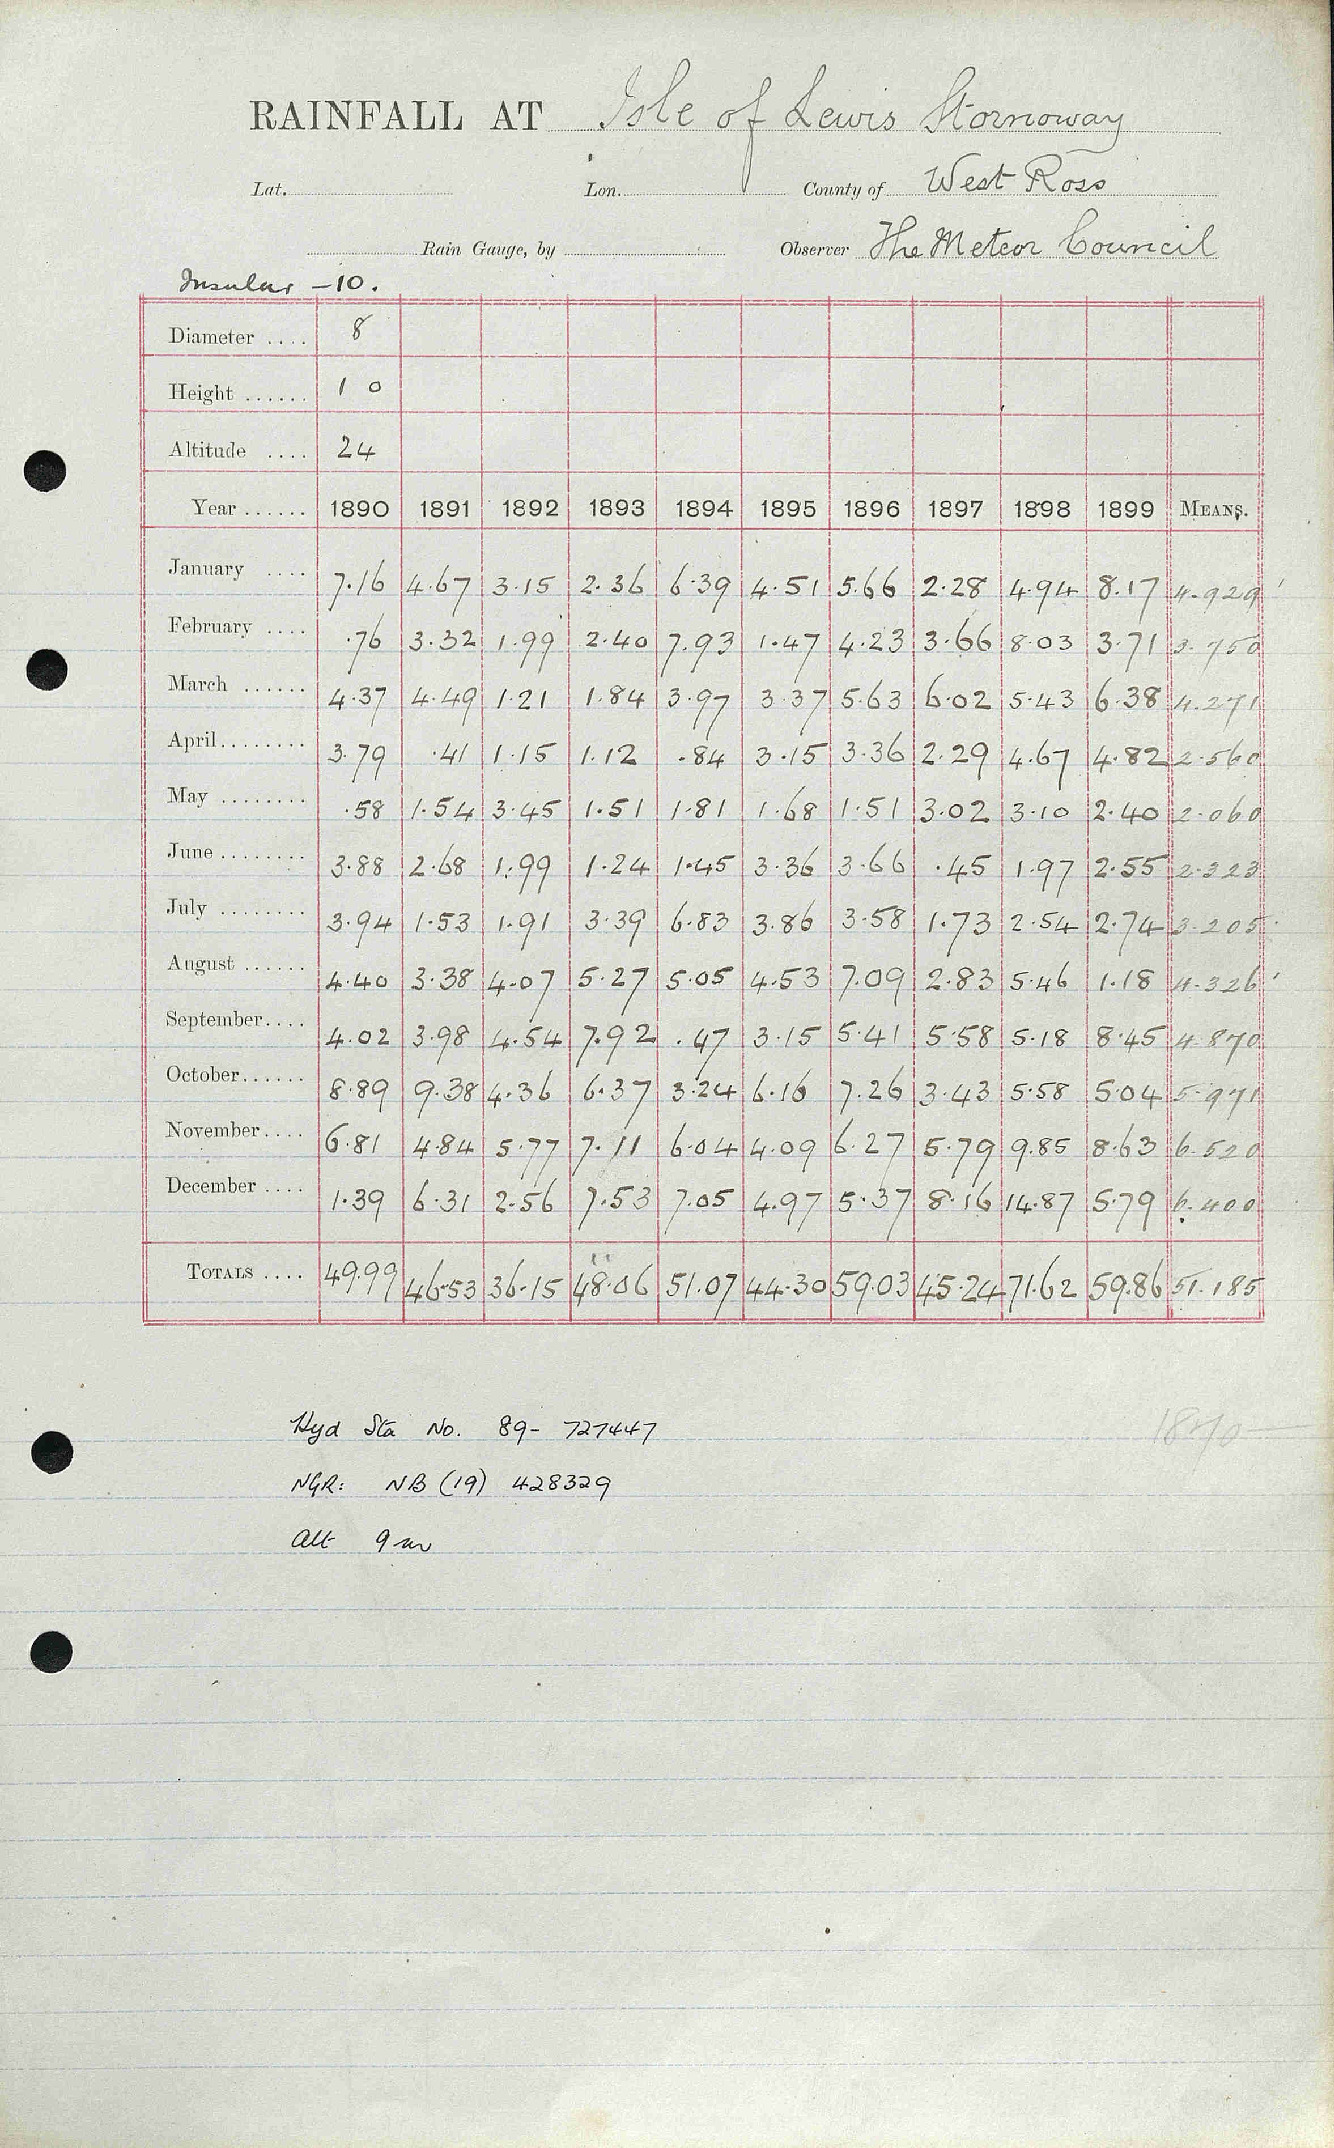 RAINFALL AT Isle of Lewis Stornoway
Lat. Lon. County of West Ross
Rain Gauge, by Observer The Meteor Council
Insular -10.
Diameter .... 8
Height ...... 10
Altitude .... 24
Year ...... 1890 1891 1892 1893 1894 1895 1896 1897 1898 1899 MEANS.
January .... 7.16 4.67 3.15 2.36 6.39 4.51 5.66 2.28 4.94 8.17 4.929
February .... .76 3.32 1.99 2.40 7.93 1.47 4.23 3.66 8.03 3.71 3.750
March ...... 4.37 4.49 1.21 1.84 3.97 3.37 5.63 6.02 5.43 6.38 4.271
April........ 3.79 .41 1.15 1.12 .84 3.15 3.36 2.29 4.67 4.82 2.560
May ........ .58 1.54 3.45 1.51 1.81 1.68 1.51 3.02 3.10 2.40 2.060
June ........ 3.88 2.68 1.99 1.24 1.45 3.36 3.66 .45 1.97 2.55 2.323
July ........ 3.94 1.53 1.91 3.39 6.83 3.86 3.58 1.73 2.54 2.74 3.205
August ...... 4.40 3.38 4.07 5.27 5.05 4.53 7.09 2.83 5.46 1.18 4.326
September.... 4.02 3.98 4.54 7.92 .47 3.15 5.41 5.58 5.18 8.45 4.870
October...... 8.89 9.38 4.36 6.37 3.24 6.16 7.26 3.43 5.58 5.04 5.971
November.... 6.81 4.84 5.77 7.11 6.04 4.09 6.27 5.79 9.85 8.63 6.520
December .... 1.39 6.31 2.56 7.53 7.05 4.97 5.37 8.16 14.87 5.79 6.400
TOTALS .... 49.99 46.53 36.15 48.06 51.07 44.30 59.03 45.24 71.62 59.86 51.185
Hyd Sta No. 89- 727447
NGR: NB (19) 428329
Alt 9m